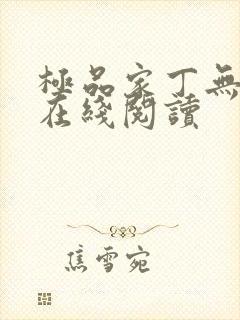 極品家丁無
在綫閱讀
焦雪宛